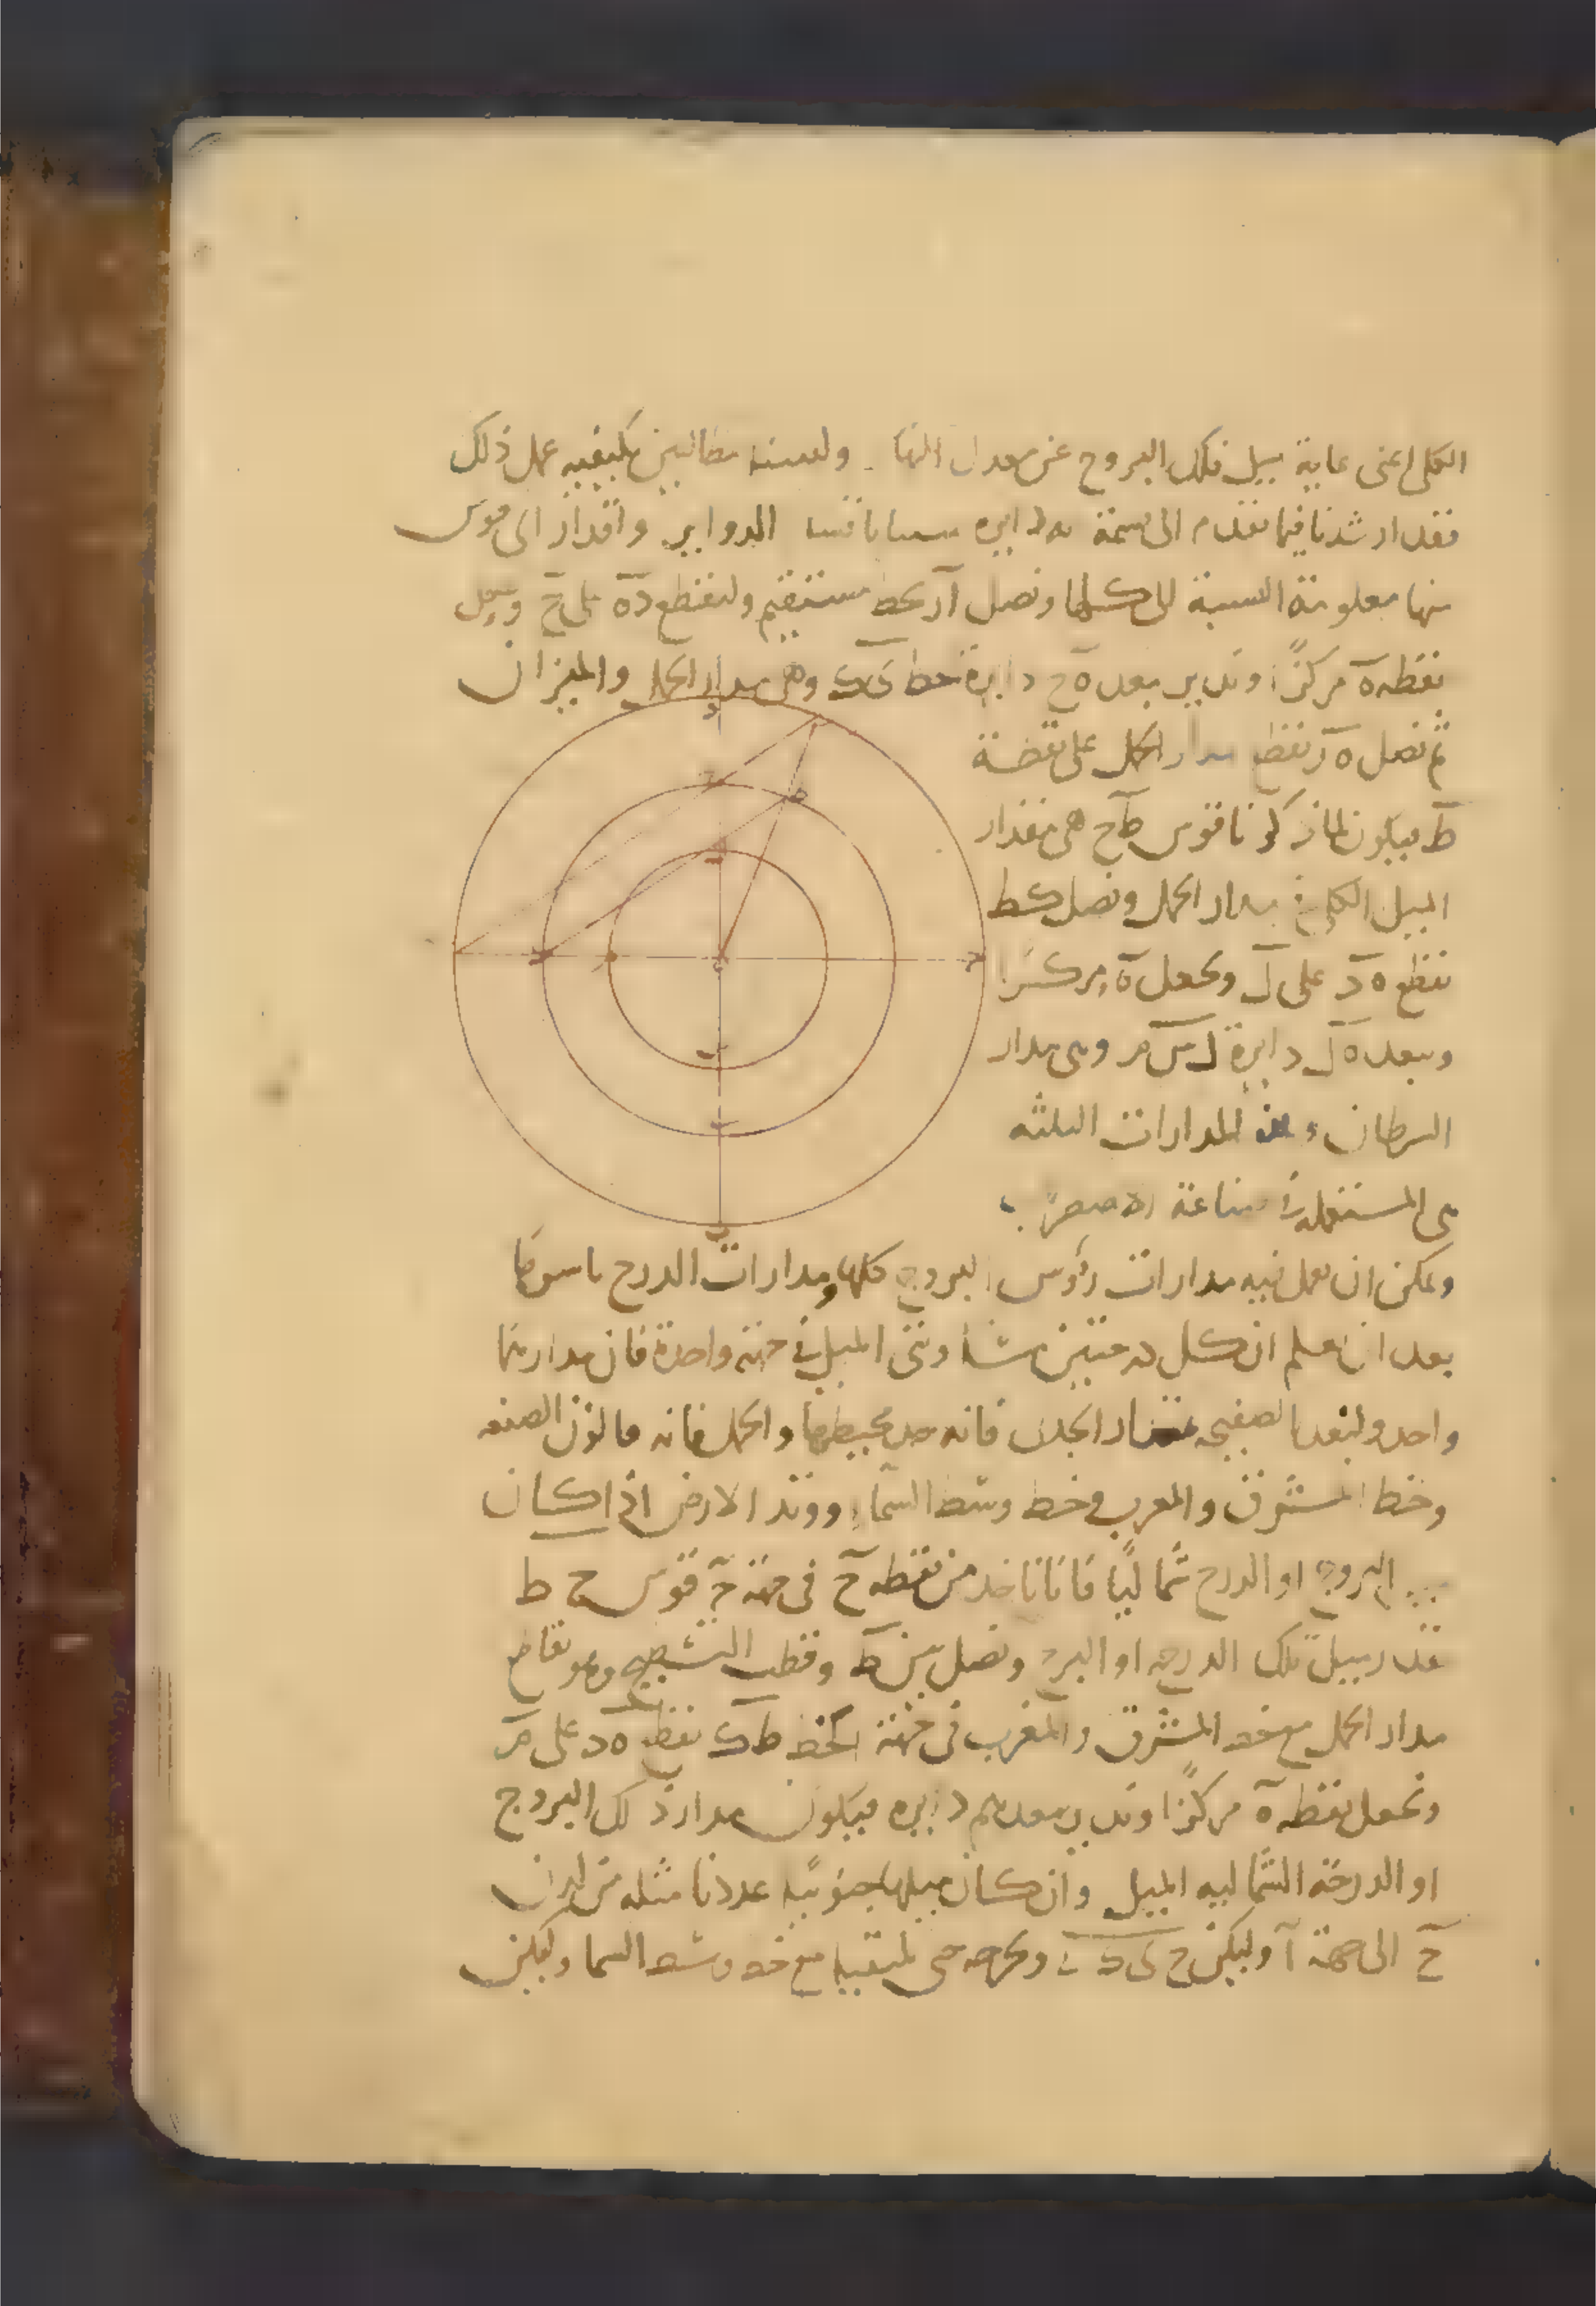 الكلى اعنى غاية ميل فلك البروج عن معدل النها ولسنا مطالبين بكيفية عمل ذلك
فقد ارشدنا فيما تقدم الى قسمة الدوايره الدواير واقدار اى قوس
منها معلومة النسبة الى كلها ونصل آز بخط مستقيم وليقطع دَه على حَ ونجعل
نقطه ه مركزًا وندير ببعد ه ح دايرة وهى مدار الحمل والميزان
ثم نصل ه ز نقطع مدار الحمل على نقطة
ط فيكون لما ذكرنا قوس ط ح هى مقدار
الميل الكلى فى مدار الحمل ونصل ك ط
نقطع ه د على ل ونجعل ه مركزا
وببعد ه ل دايرة ل س م وهى مدار
السرطان وهذه المدارات الثلثه
هى المستعمله فى صناعة الاصطرلاب
ويمكن ان نعمل فيه مدارات رؤوس البروج كلها ومدارات الدرج باسرها
بعد ان نعلم ان كل درجتين متساويتى الميل فى جهة واحدة فان مداريهما
واحد ولنعد الصفيحه مدار الجدى فانه حد محيطها والحمل فانه قانون الصنعه
وخط المشرق والمغرب وخط وسط السماء ووتد الارض اذا كان
البروج او الدرج شماليًا فانا ناخذ من نقطه ح فى جهة ج قوس ح ط
بقدر ميل تلك الدرجه او البرج ونصل بين ط وقطب التسطيح وهو تقاطع
مدار الحمل مع خط المشرق والمغرب فى جهة بخط ط ك نقطع ه د على م
ونجعل نقطه ه مركزا وندير ببعد ه م دايره فيكون مدار ذلك البروج
او الدرجة الشماليه الميل وان كان ميلها جنوبيا عددنا مثله من لدن
ح الى جهة آ وليكن ح ى ونخرجه حتى يلتقيا مع خط وسط السما وليكن